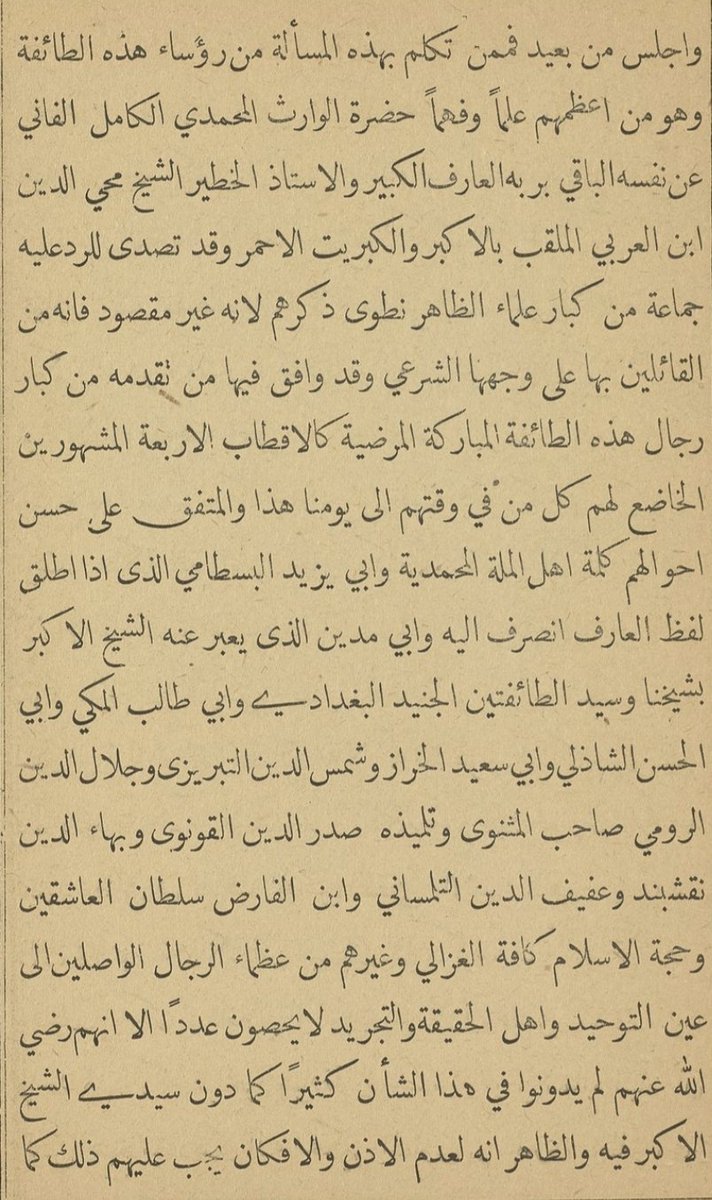 واجلس من بعيد فممن تكلم بهذه المسألة من رؤساء هذه الطائفة
وهو من اعظمهم علماً وفهماً حضرة الوارث المحمدي الكامل الفاني
عن نفسه الباقي بربه العارف الكبير والاستاذ الخطير الشيخ محي الدين
ابن العربي الملقب بالاكبر والكبريت الاحمر وقد تصدى للرد عليه
جماعة من كبار علماء الظاهر نطوى ذكرهم لانه غير مقصود فانه من
القائلين بها على وجهها الشرعي وقد وافق فيها من تقدمه من كبار
رجال هذه الطائفة المباركة المرضية كالاقطاب الاربعة المشهورين
الخاضع لهم كل من في وقتهم الى يومنا هذا والمتفق على حسن
احوالهم كلمة اهل الملة المحمدية وابي يزيد البسطامي الذى اذا اطلق
لفظ العارف انصرف اليه وابي مدين الذى يعبر عنه الشيخ الاكبر
بشيخنا وسيد الطائفتين الجنيد البغدادي وابي طالب المكي وابي
الحسن الشاذلي وابي سعيد الخراز وشمس الدين التبريزى وجلال الدين
الرومي صاحب المثنوى وتلميذه صدر الدين القونوى وبهاء الدين
نقشبند وعفيف الدين التلمساني وابن الفارض سلطان العاشقين
وحجة الاسلام كافة الغزالي وغيرهم من عظماء الرجال الواصلين الى
عين التوحيد واهل الحقيقة والتجريد لا يحصون عدداً الا انهم رضي
الله عنهم لم يدونوا في هذا الشأن كثيراً كما دون سيدي الشيخ
الاكبر فيه والظاهر انه لعدم الاذن والافكان يجب عليهم ذلك كما